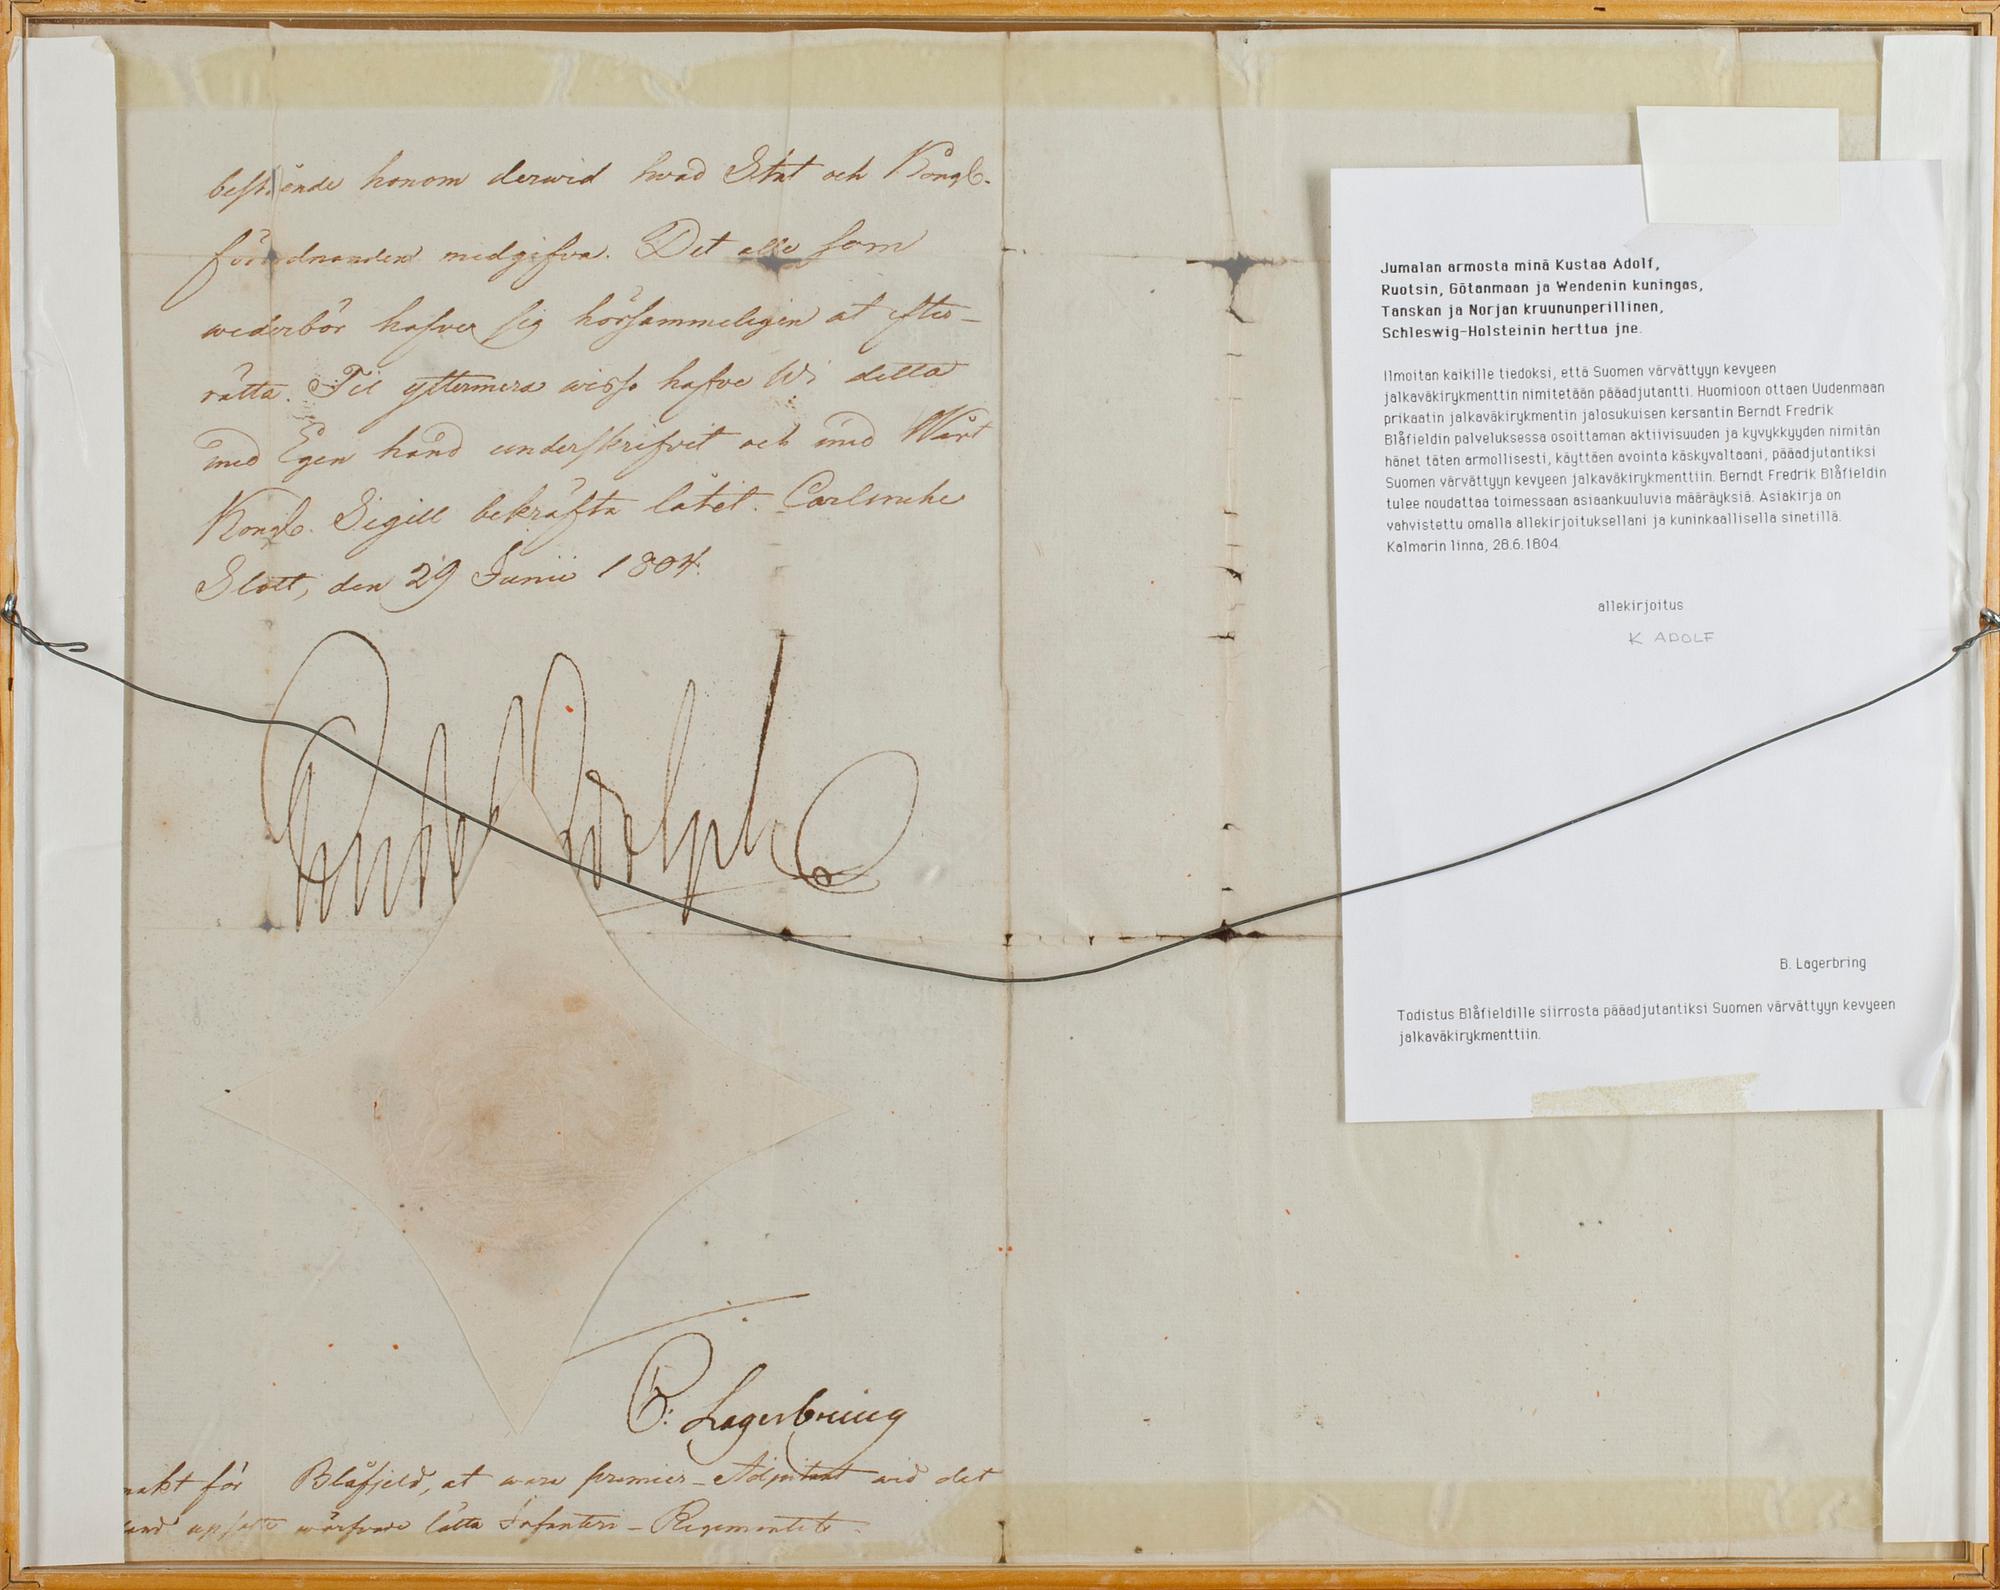 bestående honom derwid hwad Stat och Kongl.
förordnanden medgifva. Det alle som
wederbör hafver sig hörsammeligen at efter-
rätta. Til yttermera wisso hafve Wi detta
med Egen hand underskrifvit och med Wårt
Kongl. Sigill bekräfta låtit. Carlsruhe
Slott, den 29 Junii 1804.
Gustaf Adolph
Lagerbring
makt för Blåfjeld, at wara premier-Adjutant wid det
land upsatte wärfvade lätta Infanteri-Regementet.
Jumalan armosta minä Kustaa Adolf,
Ruotsin, Götanmaan ja Wendenin kuningas,
Tanskan ja Norjan kruununperillinen,
Schleswig-Holsteinin herttua jne.
Ilmoitan kaikille tiedoksi, että Suomen värvättyyn kevyeen
jalkaväkirykmenttin nimitetään pääadjutantti. Huomioon ottaen Uudenmaan
prikaatin jalkaväkirykmentin jalosukuisen kersantin Berndt Fredrik
Blåfieldin palveluksessa osoittaman aktiivisuuden ja kyvykkyyden nimitän
hänet täten armollisesti, käyttäen avointa käskyvaltaani, pääadjutantiksi
Suomen värvättyyn kevyeen jalkaväkirykmenttiin. Berndt Fredrik Blåfieldin
tulee noudattaa toimessaan asiaankuuluvia määräyksiä. Asiakirja on
vahvistettu omalla allekirjoituksellani ja kuninkaallisella sinetillä.
Kalmarin linna, 28.6.1804.
allekirjoitus
K ADOLF
B. Lagerbring
Todistus Blåfieldille siirrosta pääadjutantiksi Suomen värvättyyn kevyeen
jalkaväkirykmenttiin.